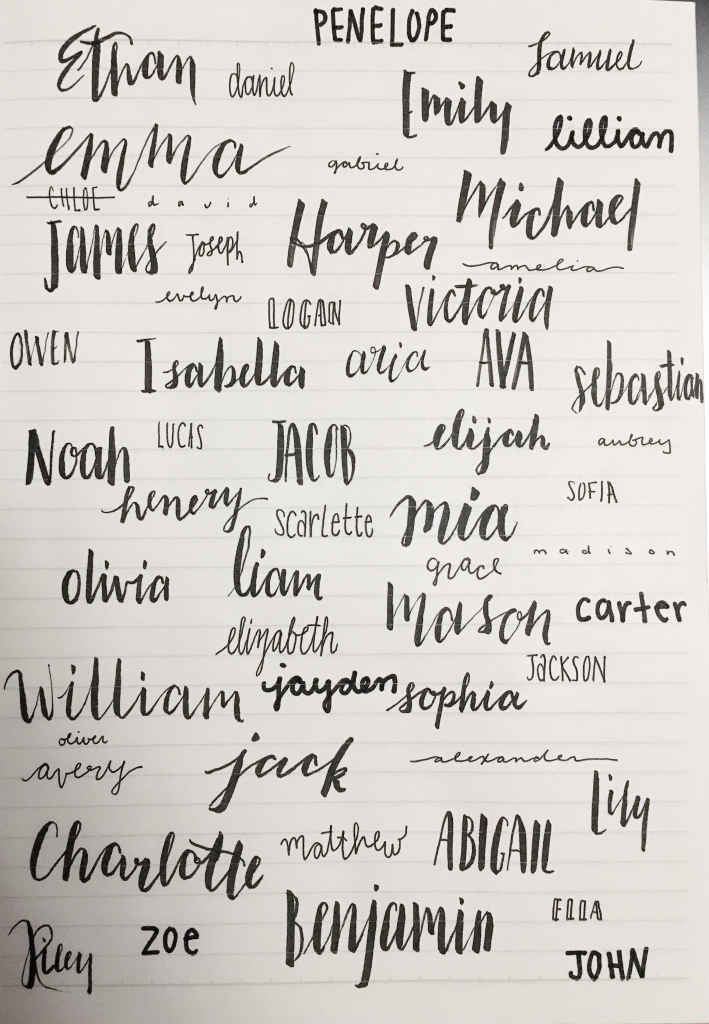 PENELOPE
Ethan daniel Samuel
Emily lillian
emma gabriel
CHLOE david Michael
James Joseph Harper amelia
evelyn LOGAN victoria
OWEN Isabella aria AVA sebastian
Noah LUCAS JACOB elijah aubrey
henery scarlette mia SOFIA
madison
olivia liam grace
elizabeth Mason carter
William jayden sophia JACKSON
oliver
avery jack alexander Lily
Charlotte matthew ABIGAIL
Riley zoe Benjamin ELLA
JOHN